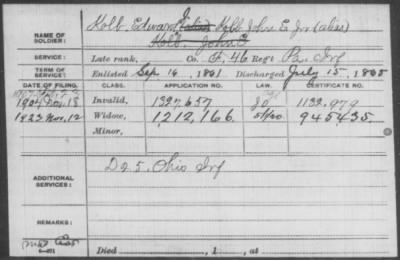 Kolb, Edward J. Kolb John E Jr (alias)
NAME OF SOLDIER: Kolb, John E
SERVICE: Late rank, Co. F, 46 Reg't Pa. Inf
TERM OF SERVICE: Enlisted Sep 16, 1861 Discharged July 15, 1865
DATE OF FILING. CLASS. APPLICATION NO. LAW. CERTIFICATE NO.
1904 Nov. 18 Invalid, 1327,657 1132,979
1923 Nov. 12 Widow, 1,212,166 945435
Minor,
D 25. Ohio Inf
ADDITIONAL SERVICES:
REMARKS:
Died , 1 , at